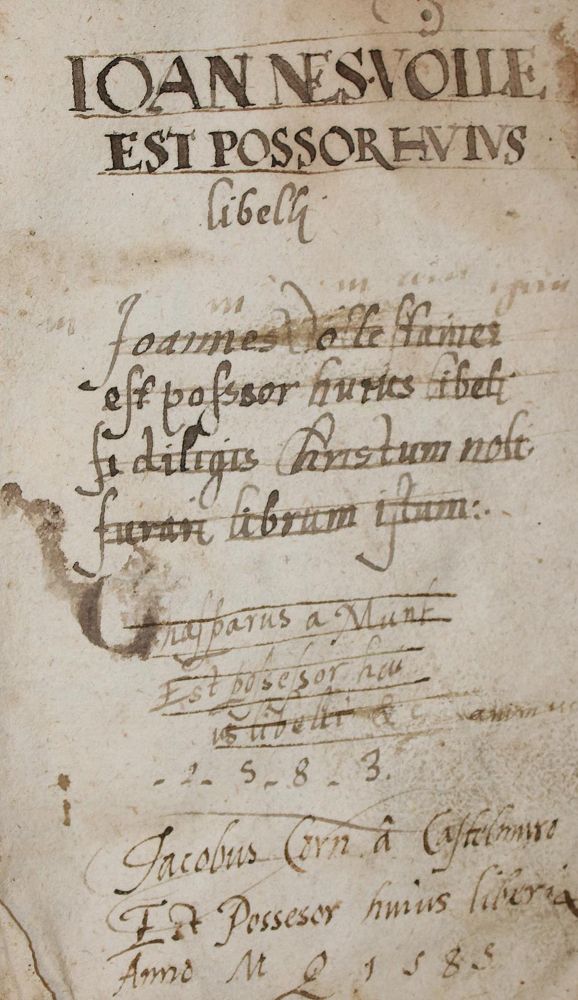 IOANNES·VOLLE
EST POSSOR HVIVS
libelli
Joannes Volle
est possor huius libeli
si diligis Christum noli
furari librum istum:.
Chasparus a Munt
Est possessor hui
us libelli &
-1-5-8-3.
Jacobus Corn â Castelmuro
Est Possesor huius liberi
Anno M D 1585